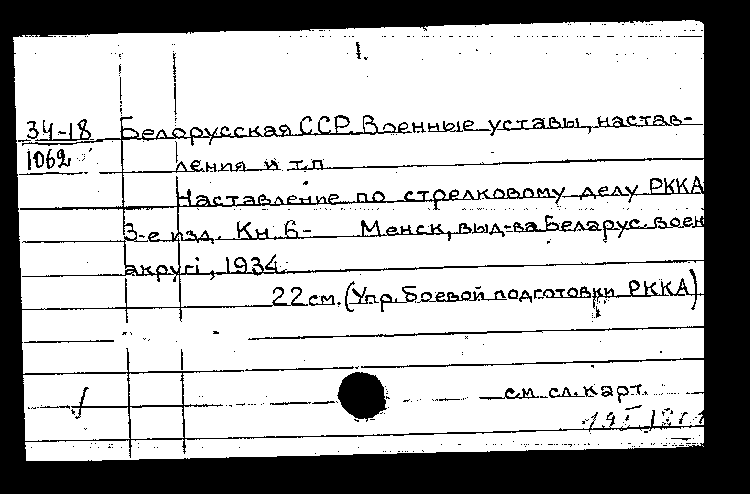 1.
34-18 Белорусская ССР. Военные уставы, настав-
1062 ления и т.п
Наставление по стрелковому делу РККА
3-е изд. Кн. 6- Менск, выд-ва Беларус. воен
акругі, 1934.
22 см. (Упр. боевой подготовки РККА)
см сл. карт.